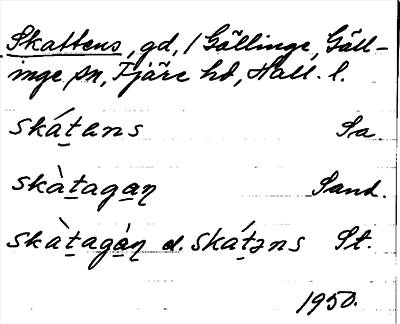 Skattens, gd, / Gällinge, Gäll-
inge sn, Fjäre hd, Hall. l.
skátans Sa.
skàtagaɳ Sand.
skàtagáɳ el. skátəns St.
1950.